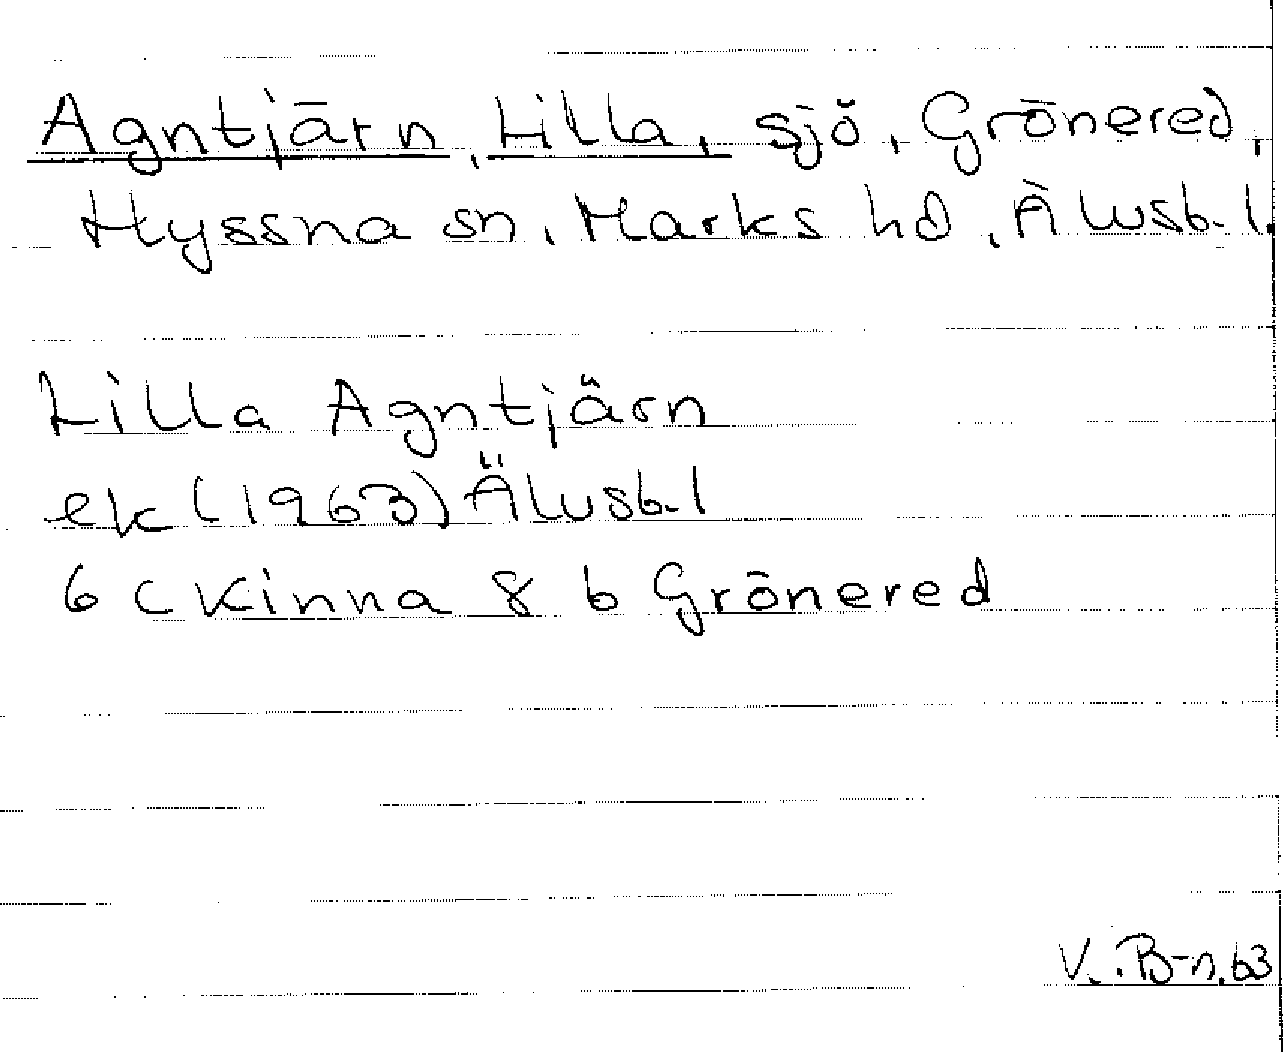 Agntjärn, Lilla, sjö, Grönered,
Hyssna sn, Marks hd, Älvsb. l.
Lilla Agntjärn
ek (1963) Älvsb. l
6 C Kinna 8 b Grönered
V. B-n. 63